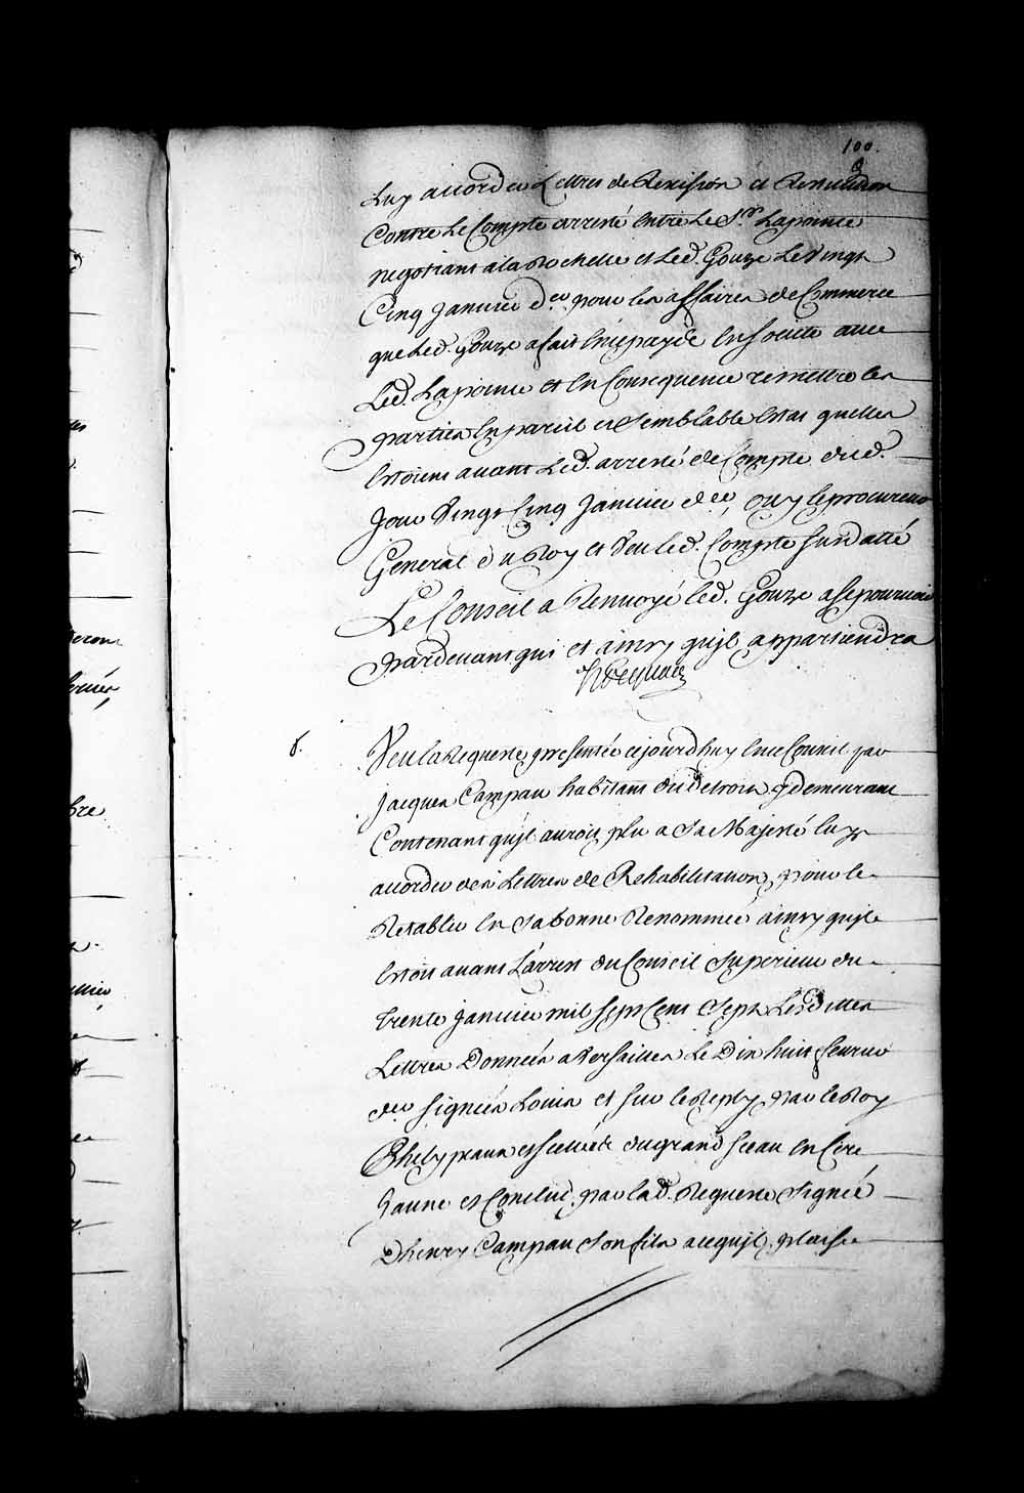 100.
Luy accorder Lettres de Rescision et Restitution
Contre Le Compte arresté entre Le Sr. Lapoinue
negotiant a la Rochelle et Led. Gouze Le vingt
Cinq Janvier der. pour les affaires de Commerce
que Led. Gouze a fait en ce paÿs en société avec
Led. et en Consequence remettre les
parties en pareil et Semblable Estat quelles
Estoient avant Led. arresté de Compte dud.
Jour Vingt Cinq Janvier der, Ouy le procureur
General du Roy et Veu led. Compte susdatté
Le Conseil a Renvoyé led. Gouze a se pourvoir
pardevant qui et ainsy quil appartiendra
8. Veu la Requeste presentée cejourd'huy en ce Conseil par
Jacques Campau habitant du detroit y demeurant
Contenant quil auroit plu a Sa Majesté luy
accorder des Lettres de Rehabilitation, pour le
Restablir en sa bonne Renommée ainsy quil
Estoit avant L'arrest du Conseil Superieur du
trente janvier mil sept Cent Sept Lesdittes
Lettres Données a Versailles Le Dix huit feuvrier
der signées Louis et sur le Reply, par le Roy
Phelypeaux et scellées du grand sceau en Cire
Jaune et Conclud. par lad. Requeste Signée
Dhenry Campau Son fils acequil plaise